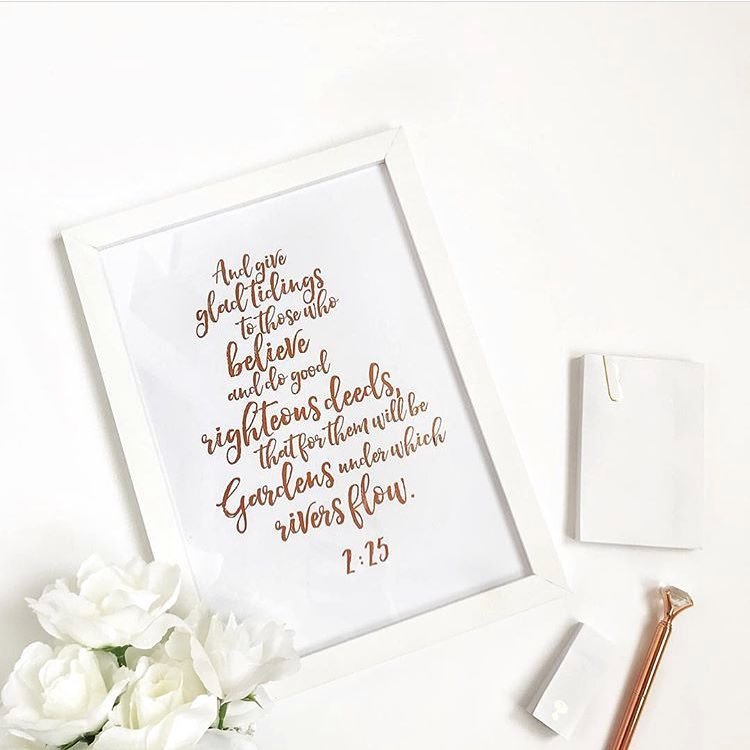 And give
glad tidings
to those who
believe
and do good
righteous deeds,
that for them will be
Gardens under which
rivers flow.
2:25